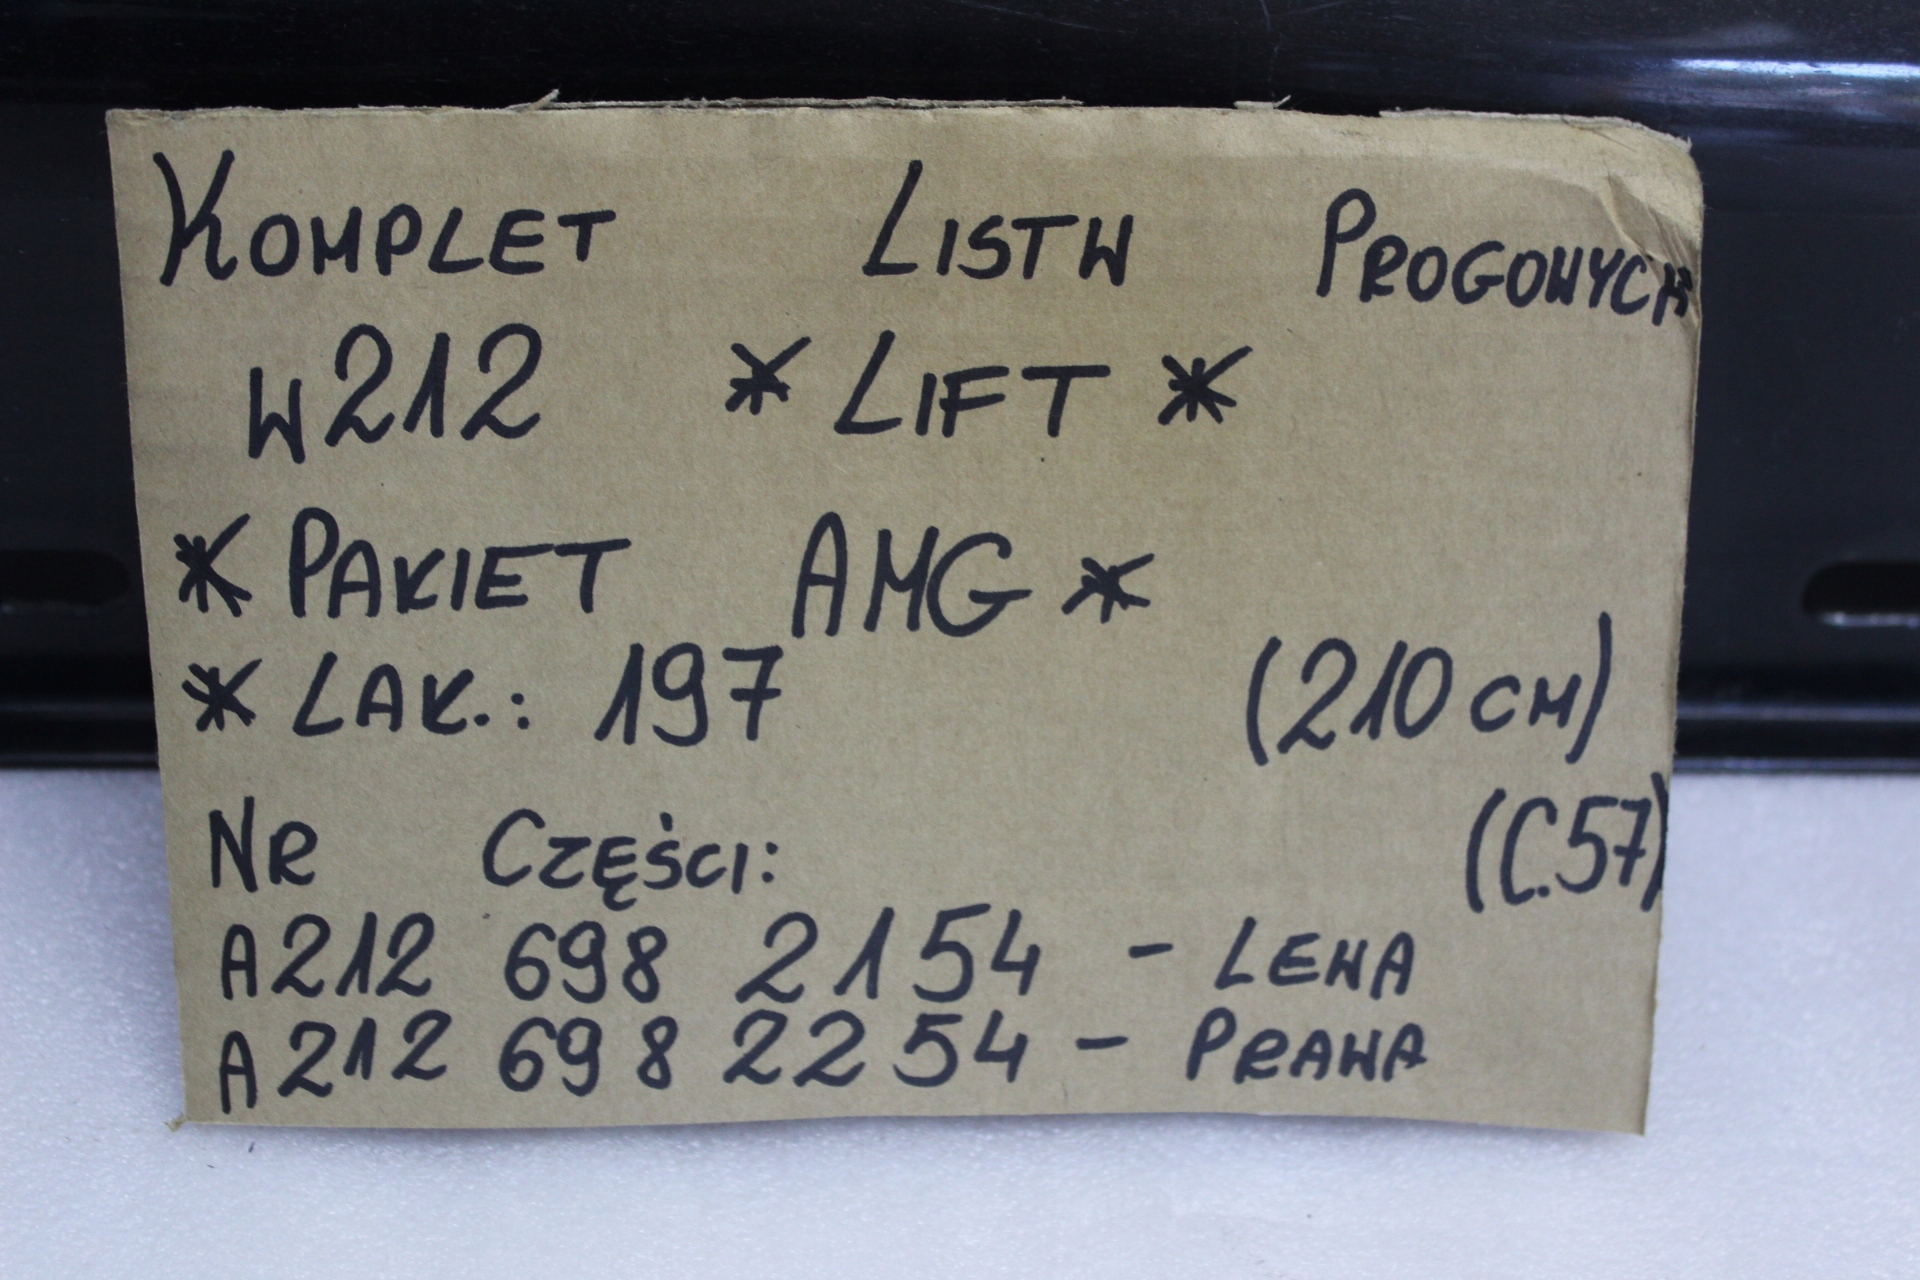 KOMPLET LISTW PROGOWYCH
W212 * LIFT *
* PAKIET AMG *
* LAK.: 197 (210 CM)
NR CZĘŚCI: (C.57)
A212 698 2154 - LEWA
A212 698 2254 - PRAWA